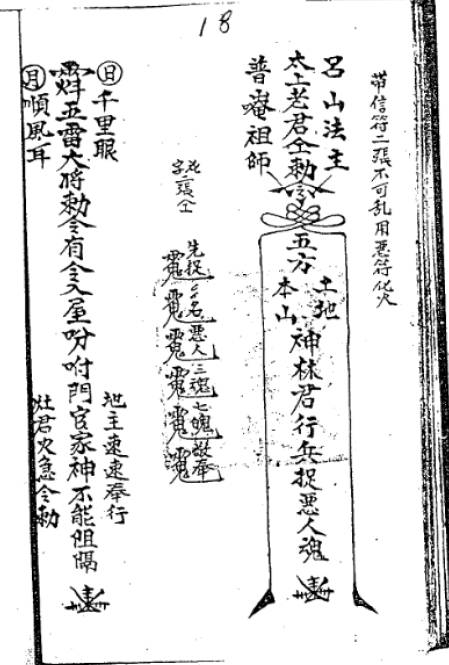 18
帶信符二張不可乱用惡符化火
呂山法主
太上老君仝勅令
普唵祖師
五方
土地
本山
神林君行兵捉惡人魂
字二張仝
先捉
名
惡人
三魂
七魄
敢奉
日千里眼
五雷大将勅令有令入屋吩咐門官家神不能阻隔
月順風耳
地主速速奉行
灶君火急令勅